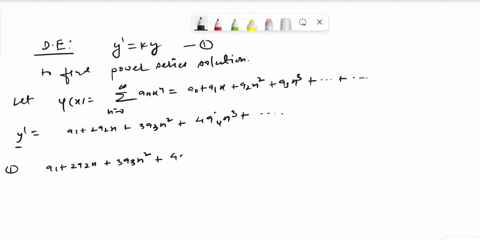 D.E: y' = Ky —①
to find power series solution.
Let y(x) = ∑ₙ₌₀^∞ aₙxⁿ = a₀+a₁x+a₂x²+a₃x³+ ⋯ + ⋯
y' = a₁+2a₂x+3a₃x²+4a₄x³+ ⋯
① a₁+2a₂x+3a₃x²+4